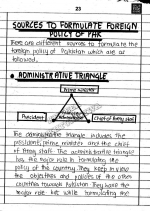 23
SOURCES TO FORMULATE FOREIGN
POLICY OF PAK
There are different sources to formulate the
foreign policy of Pakistan which are as
followed.
ADMINISTRATIVE TRIANGLE
Prime minister
Administrative
President
Chief of Army staff
The administrative triangle includes the
president, prime minister and the chief
of Army staff. The administrative triangle
has the major role in formulating the
policy of the country. They keep in view
the objectives and policies of the other
countries towards Pakistan. They have the
major role like while formulating the